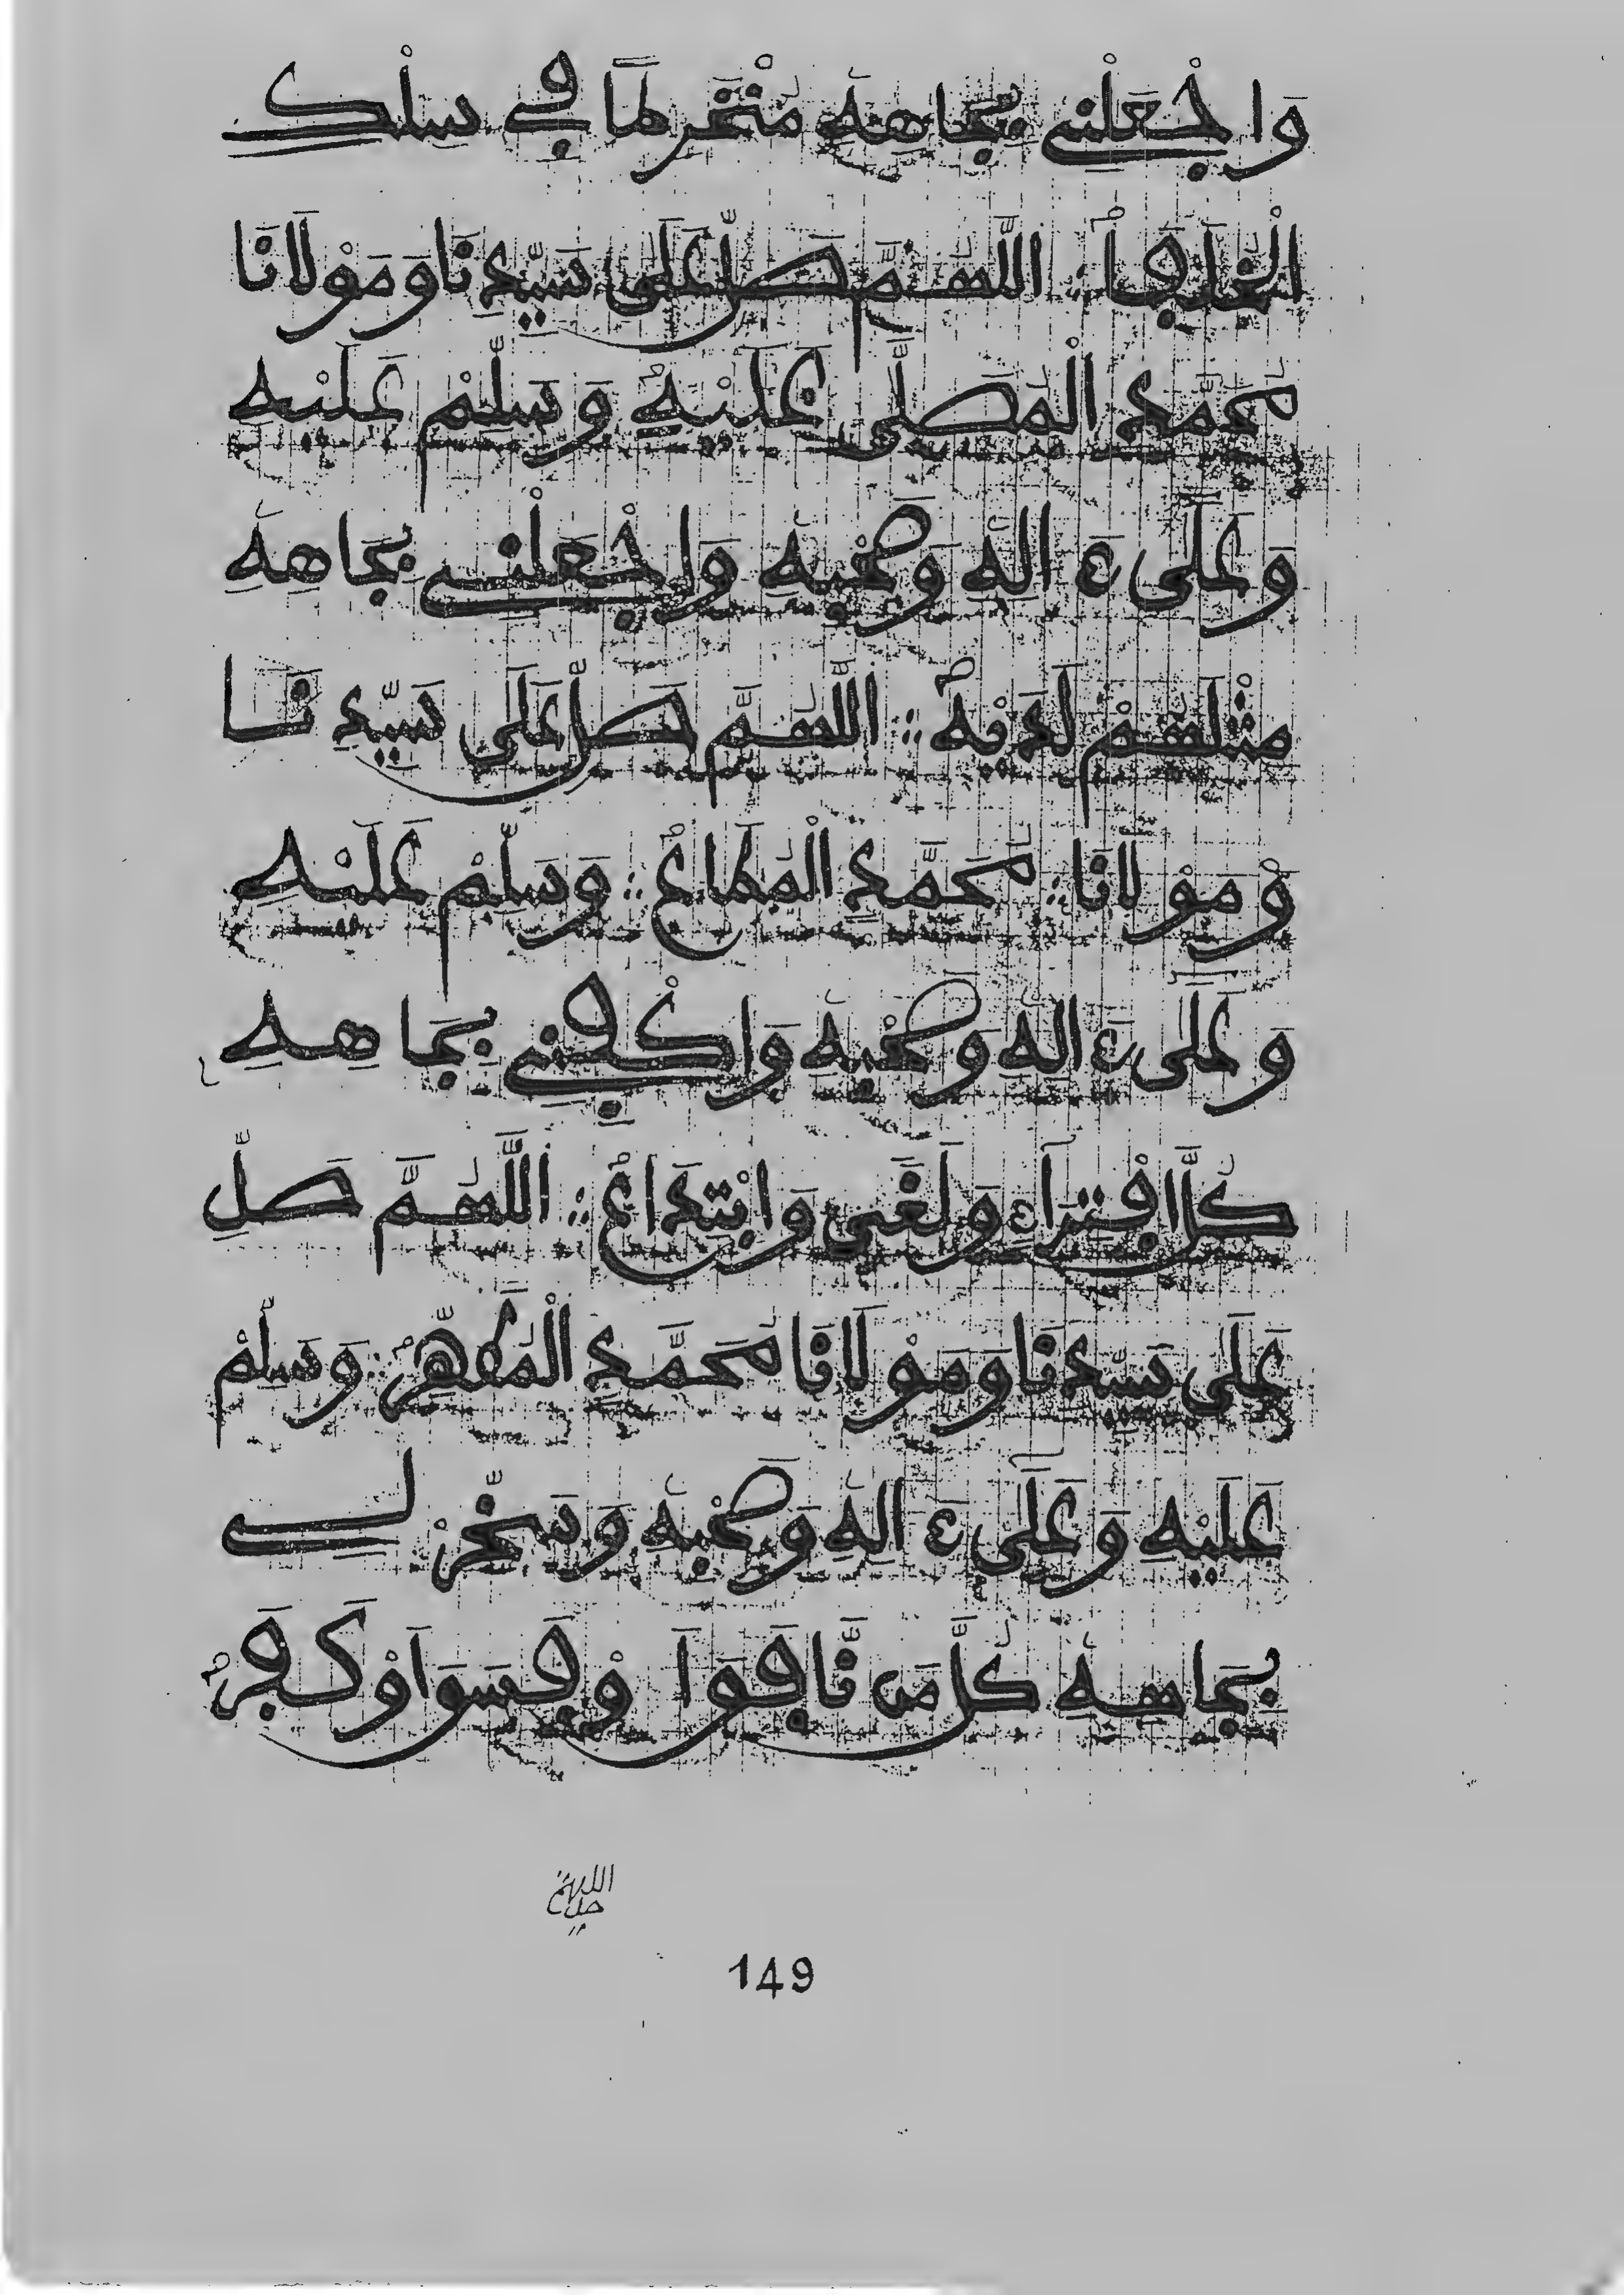 وَاجْعَلْنِي بِجَاهِهِ مُنْخَرِطًا فِي سِلْكِ
الْخُلَفَا؞ اللَّهُمَّ صَلِّ عَلَى سَيِّدِنَا وَمَوْلَانَا
مُحَمَّدٍ الْمُصَلَّى عَلَيْهِ وَسَلِّمْ عَلَيْهِ
وَعَلَى ءَالِهِ وَصَحْبِهِ وَاجْعَلْنِي بِجَاهِهِ
مِثْلَهُمْ لَدَيْهِ؞ اللَّهُمَّ صَلِّ عَلَى سَيِّدِنَا
وَمَوْلَانَا؞ مُحَمَّدٍ الْمُطَاعِ؞ وَسَلِّمْ عَلَيْهِ
وَعَلَى ءَالِهِ وَصَحْبِهِ وَاكْفِنِي بِجَاهِهِ
كُلَّ افْتِرَاءٍ وَلَغْيٍ وَابْتِدَاعٍ؞ اللَّهُمَّ صَلِّ
عَلَى سَيِّدِنَا وَمَوْلَانَا مُحَمَّدٍ الْمُطَهَّرِ؞ وَسَلِّمْ
عَلَيْهِ وَعَلَى ءَالِهِ وَصَحْبِهِ وَسَخِّرْ لِي
بِجَاهِهِ كُلَّ مَن نَّافَقَ وَفَسَقَ أَوْ كَفَرَ
اللهم
صل ع
149